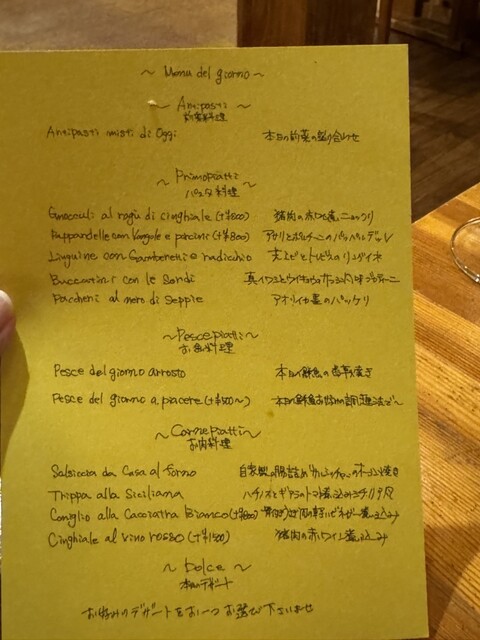 ~ Menu del giorno ~
~ Antipasti ~
前菜料理
Antipasti misti di Oggi 本日の前菜の盛り合わせ
~ Primopiatti ~
パスタ料理
al ragù di cinghiale (+¥800) 猪肉の
Pappardelle con Vongole e porcini (+¥800) アサリとポルチーニのパッパルデッレ
Linguine con Gamberetti e radicchio
con le Sardi
Paccheri al nero di Seppie アオリイカ墨のパッケリ
~ Pescepiatti ~
お魚料理
Pesce del giorno arrosto 本日の鮮魚の香草焼き
Pesce del giorno a piacere (+¥500~) 本日の鮮魚お好みの調理法で~
~ Carnepiatti ~
お肉料理
Salsiccia da Casa al forno 自家製の腸詰め
Trippa alla Siciliana ハチノスとギアラのトマト煮込み
Coniglio alla Cacciatra Bianco (+¥800)
Cinghiale al vino rosso (+¥1500) 猪肉の赤ワイン煮込み
~ Dolce ~
本日のデザート
お好みのデザートをお一つお選び下さいませ